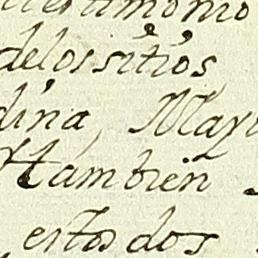 testimonio
delos sitios
dina, May
tambien
estos dos